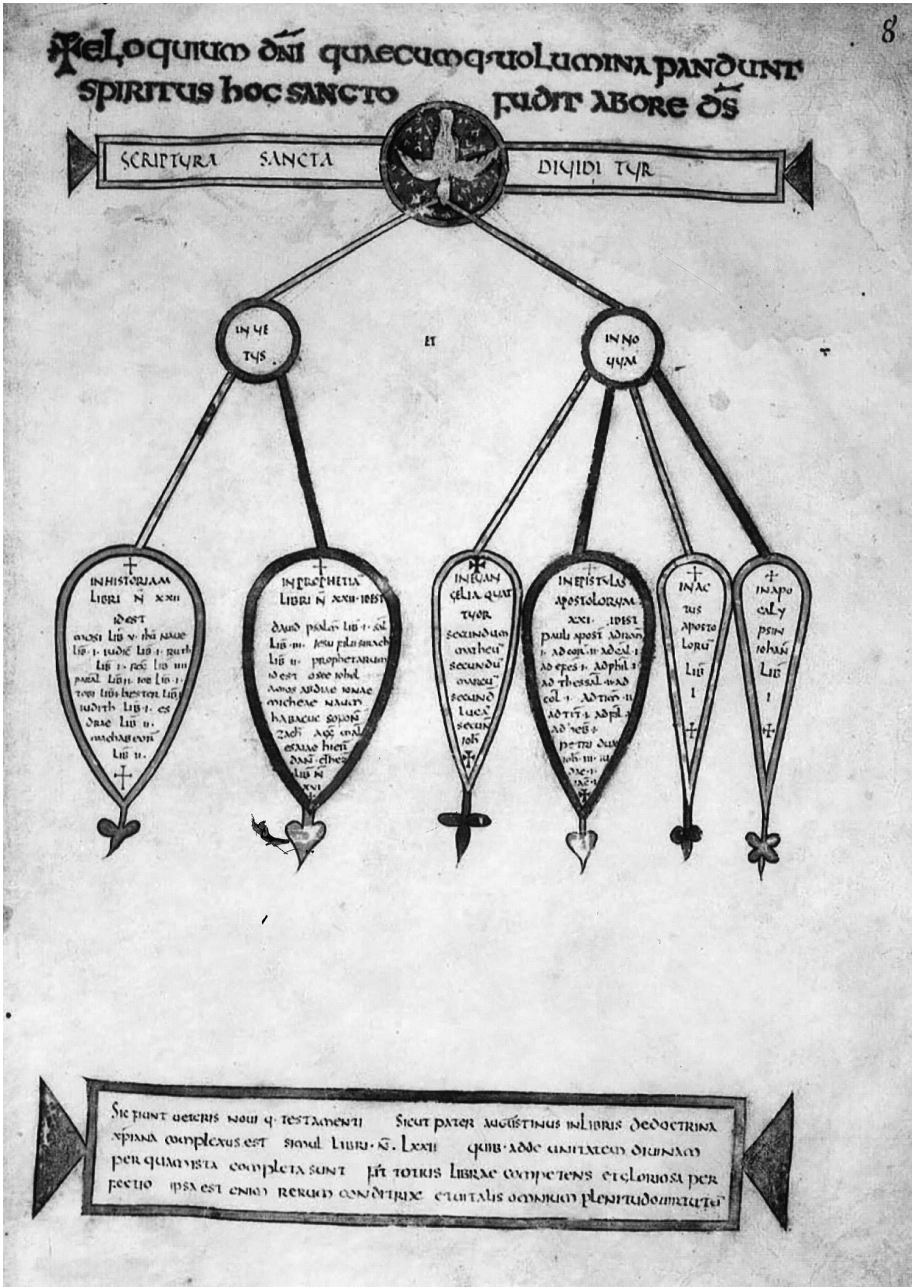 8
ELOQUIUM DNI QUAECUMQ· UOLUMINA PANDUNT
SPIRITUS HOC SANCTO FUDIT AB ORE DS
SCRIPTURA SANCTA DIVIDITUR
IN VE
TUS
ET
IN NO
VUM
IN HISTORIAM
LIBRI N̄ XXII
IDEST
MOSI LIB̄ V· IHŪ NAUE
LIB̄ ·I· IUDIC̄ LIB̄ ·I· RUTH
LIB̄ ·I· REḠ LIB̄ IIII
PARAL̄ LIB̄ II· IOB LIB̄ ·I·
TOBI LIB̄ I HESTER LIB̄ I
IUDITH LIB̄ ·I· ES
DRAE LIB̄ II·
MACHABEORŪ
LIB̄ II·
IN PROPHETIA
LIBRI N̄ XXII· IDEST
DAUID PSALM̄ LIB̄ ·I· SAL
LIB̄ ·III· IESU FILII SIRACH
LIB̄ II· PROPHETARUM
IDEST OSEE IOHEL
AMOS ABDIAE IONAE
MICHEAE NAUM
HABACUC SOFON̄
ZACH̄ AGḠ MAL
ESAIAE HIER̄
DAN̄ EZHEC
LIB̄ N̄
XVI
IN EVAN
GELIA QUAT
TUOR
SECUNDUM
MATHEŪ
SECUNDŪ
MARCŪ
SECUND̄
LUCĀ
SECUN̄
IOH̄
IN EPISTULAS
APOSTOLORUM
XXI· IDEST
PAULI APOST AD ROM̄
·I· AD COR̄ ·II· AD GAL ·I·
AD EFES ·I· AD PHIL ·I·
AD THESSAL ·II· AD
COL ·I· AD TIM̄ ·II·
AD TIT̄ ·I· AD PHIL ·I·
AD HEB̄ ·I·
PETRI DUAE
IOH̄ ·III· IU
DAE ·I·
IAC̄ ·I·
IN AC
TUS
APOSTO
LORŪ
LIB̄
I
IN APO
CALY
PSIN
IOHAN̄
LIB̄
I
SIC FIUNT UETERIS NOUI Q· TESTAMENTI SICUT PATER AUGUSTINUS IN LIBRIS DE DOCTRINA
XPIANA COMPLEXUS EST SIMUL LIBRI· N̄· LXXII QUIB· ADDE UNITATEM DIUINAM
PER QUAM ISTA COMPLETA SUNT FIT TOTIUS LIBRAE COMPETENS ET GLORIOSA PER
FECTIO IPSA EST ENIM RERUM CONDITRIX ET UITALIS OMNIUM PLENITUDO UIRTUTŪ